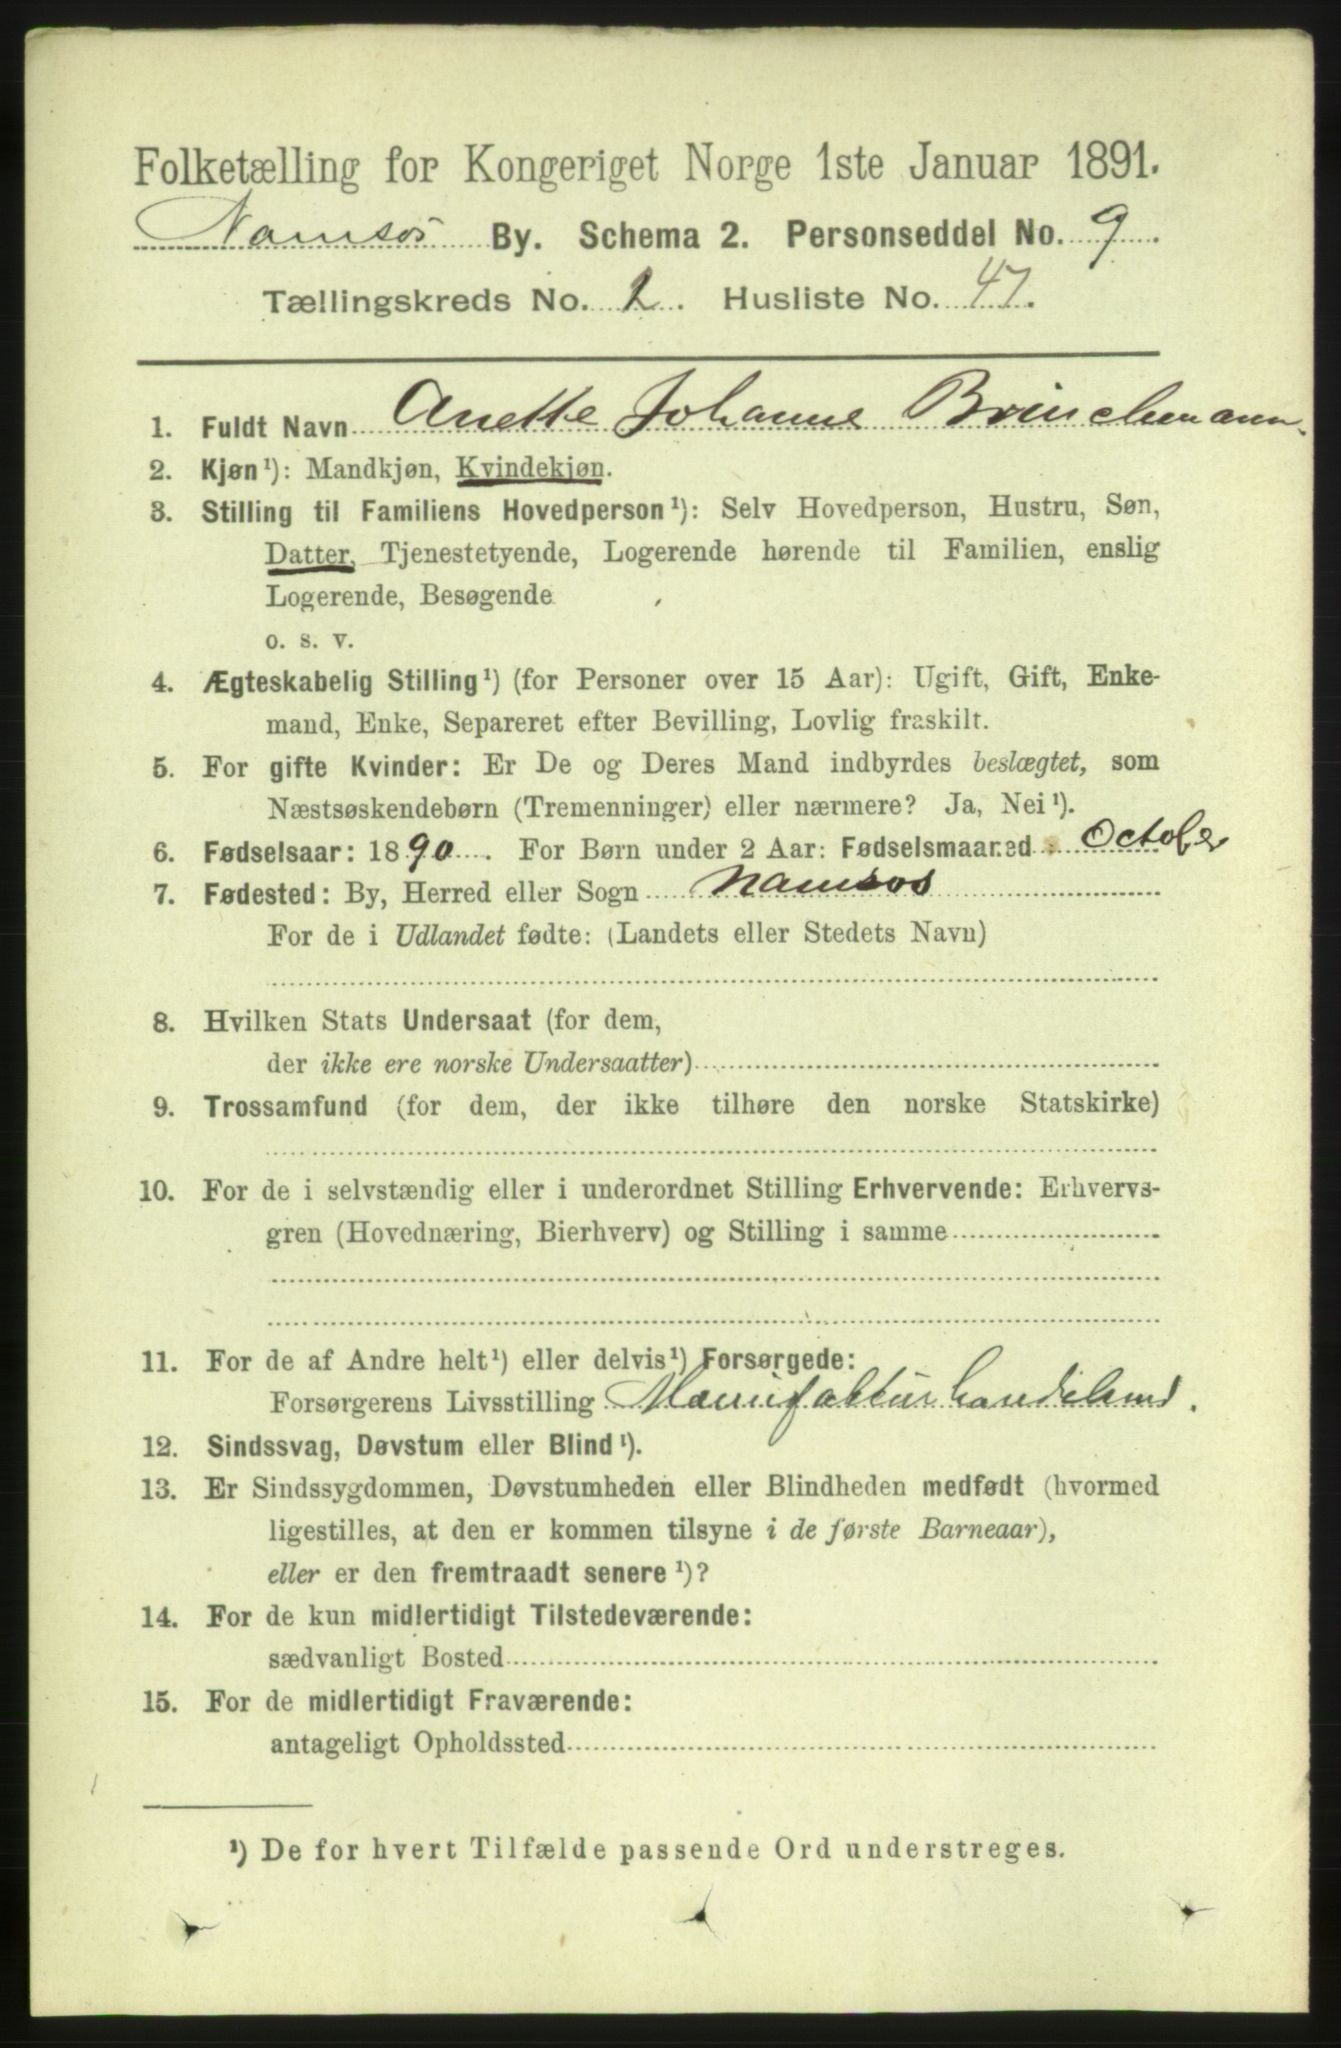 Folketælling for Kongeriget Norge 1ste Januar 1891.
Namsos By. Schema 2. Personseddel No. 9.
Tællingskreds No. 2. Husliste No. 47.
1. Fuldt Navn Anette Johanne Brinchmann.
2. Kjøn¹): Mandkjøn, Kvindekjøn.
3. Stilling til Familiens Hovedperson¹): Selv Hovedperson, Hustru, Søn,
Datter, Tjenestetyende, Logerende hørende til Familien, enslig
Logerende, Besøgende
o. s. v.
4. Ægteskabelig Stilling¹) (for Personer over 15 Aar): Ugift, Gift, Enke-
mand, Enke, Separeret efter Bevilling, Lovlig fraskilt.
5. For gifte Kvinder: Er De og Deres Mand indbyrdes beslægtet, som
Næstsøskendebørn (Tremenninger) eller nærmere? Ja, Nei¹).
6. Fødselsaar: 1890. For Børn under 2 Aar: Fødselsmaaned October
7. Fødested: By, Herred eller Sogn Namsos
For de i Udlandet fødte: (Landets eller Stedets Navn)
8. Hvilken Stats Undersaat (for dem,
der ikke ere norske Undersaatter)
9. Trossamfund (for dem, der ikke tilhøre den norske Statskirke)
10. For de i selvstændig eller i underordnet Stilling Erhvervende: Erhvervs-
gren (Hovednæring, Bierhverv) og Stilling i samme
11. For de af Andre helt¹) eller delvis¹) Forsørgede:
Forsørgerens Livsstilling Manufakturhandelsmd.
12. Sindssvag, Døvstum eller Blind¹).
13. Er Sindssygdommen, Døvstumheden eller Blindheden medfødt (hvormed
ligestilles, at den er kommen tilsyne i de første Barneaar),
eller er den fremtraadt senere¹)?
14. For de kun midlertidigt Tilstedeværende:
sædvanligt Bosted
15. For de midlertidigt Fraværende:
antageligt Opholdssted
¹) De for hvert Tilfælde passende Ord understreges.